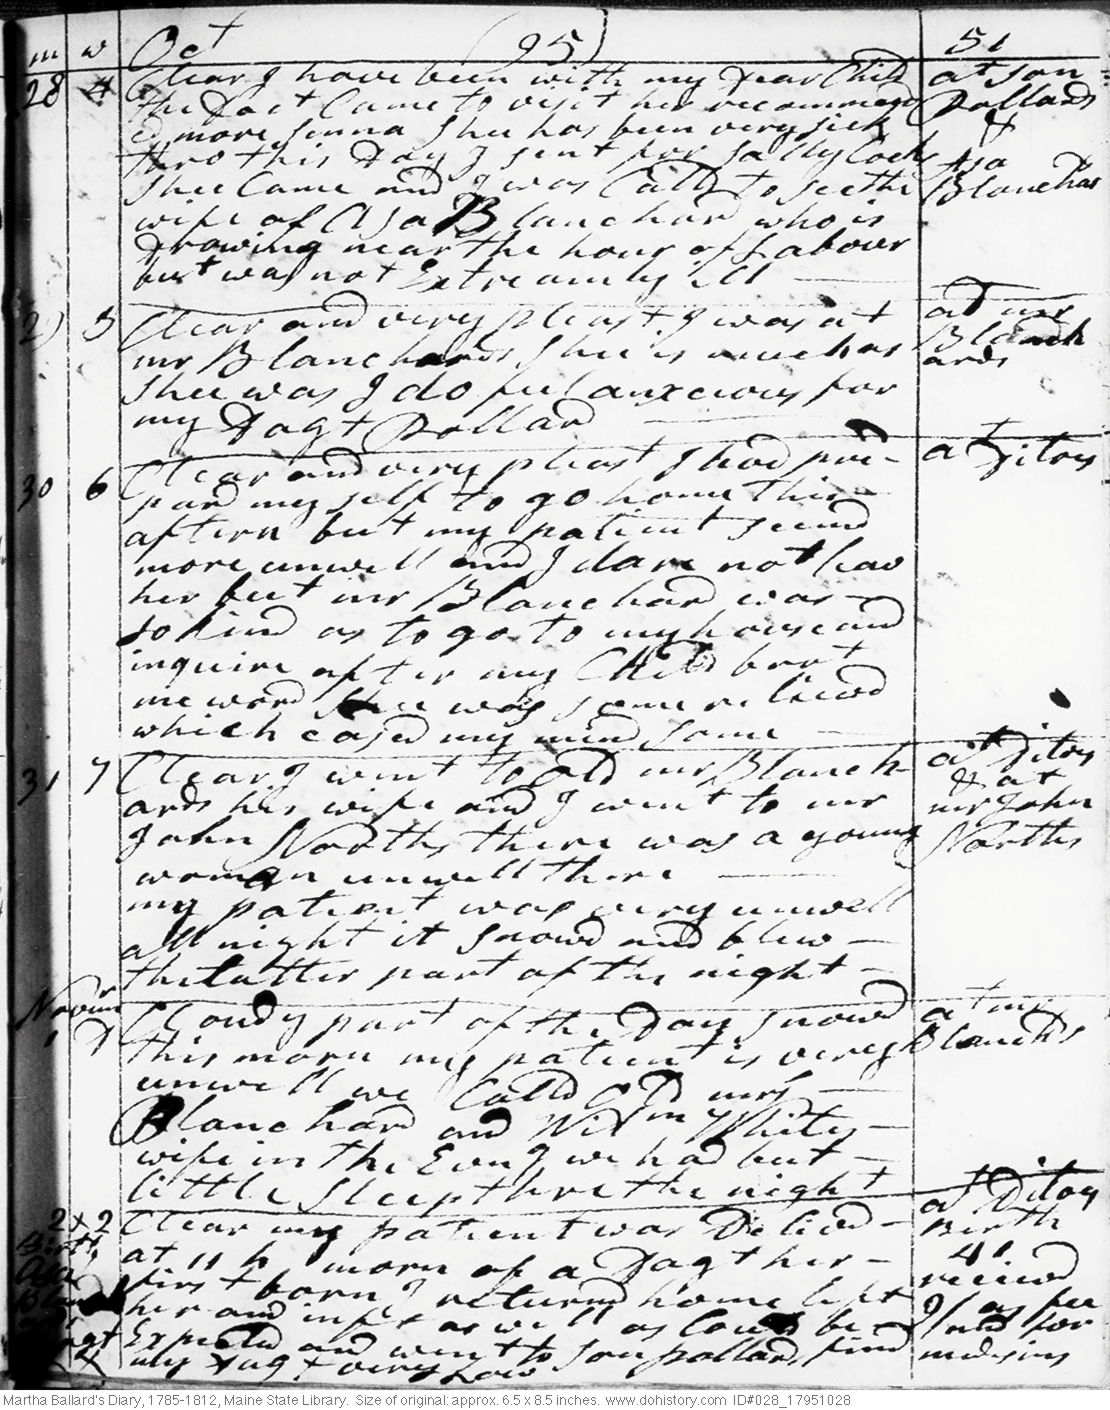 m w Oct (95) 51
28 4 Clear I have been with my Dear Child at son
the Doct Came to visit her recommend Pollards
d more senna shee has been very sick &
thro this Day I sent for Sally Cocks Asa
shee Came and I was Calld to see the Blanchar
wife of Asa Blanchard who is
Drawing near the hour of Labour
but was not Extreamly ill
29 5 Clear and very pleast I was at at mr
mr Blanchards shee is much as Blanch
shee was I do feel anxcious for ards
my Dagt Pollard
30 6 Clear and very pleast I had pre- at Ditoes
pard my self to go home this
aftern but my patient seemd
more unwell and I dare not leav
her but mr Blanchard was
so kind as to go to my house and
inquire after my Child bort
me word shee was some relievd
which eased my mind some
31 7 Clear I went to old mr Blanch- at Ditoes
ards his wife and I went to mr & at
John Norths there was a young mr John
woman unwell there Norths
my patient was very unwell
all night it snowd and blew
the latter part of the night
Novmr Cloudy part of the Day snowd at mr
1 D this morn my patient is very Blanchds
unwell we Calld old mrs
Blanchard and Wilm Whites
wife in the Evng we had but
little sleep thro the night
2 2 Clear my patient was Delivd at Ditoes
Birth at 11 h morn of a Dagt her Birth
Asa first born I returnd home left 41
Blan her and inft as well as Could be received
Expected and went to son Pollards find as fee
Dagt my Dagt very Low and for
medisins
Martha Ballard's Diary, 1785-1812, Maine State Library. Size of original: approx. 6.5 x 8.5 inches. www.dohistory.com ID#028_17951028